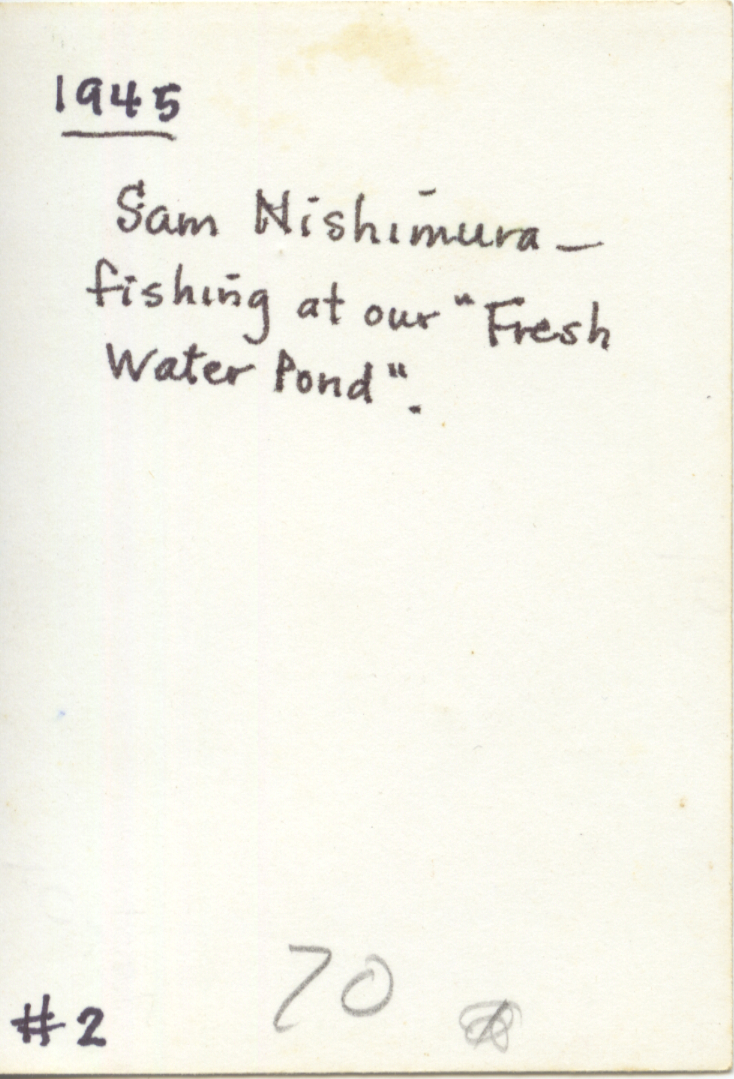 1945
Sam Nishimura —
fishing at our "Fresh
Water Pond".
70
#2